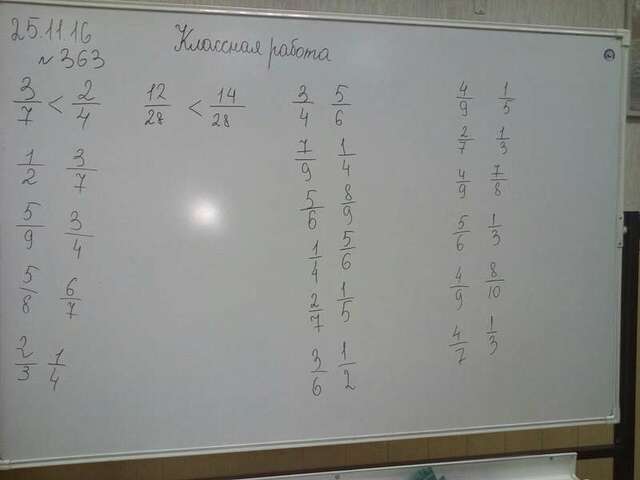 25.11.16
Классная работа
№363
3/7 < 2/4 12/28 < 14/28
1/2 3/7
5/9 3/4
5/8 6/7
2/3 1/4
3/4 5/6
7/9 1/4
5/6 8/9
1/4 5/6
2/7 1/5
3/6 1/2
4/9 1/5
2/7 1/3
4/9 7/8
5/6 1/3
4/9 8/10
4/7 1/3